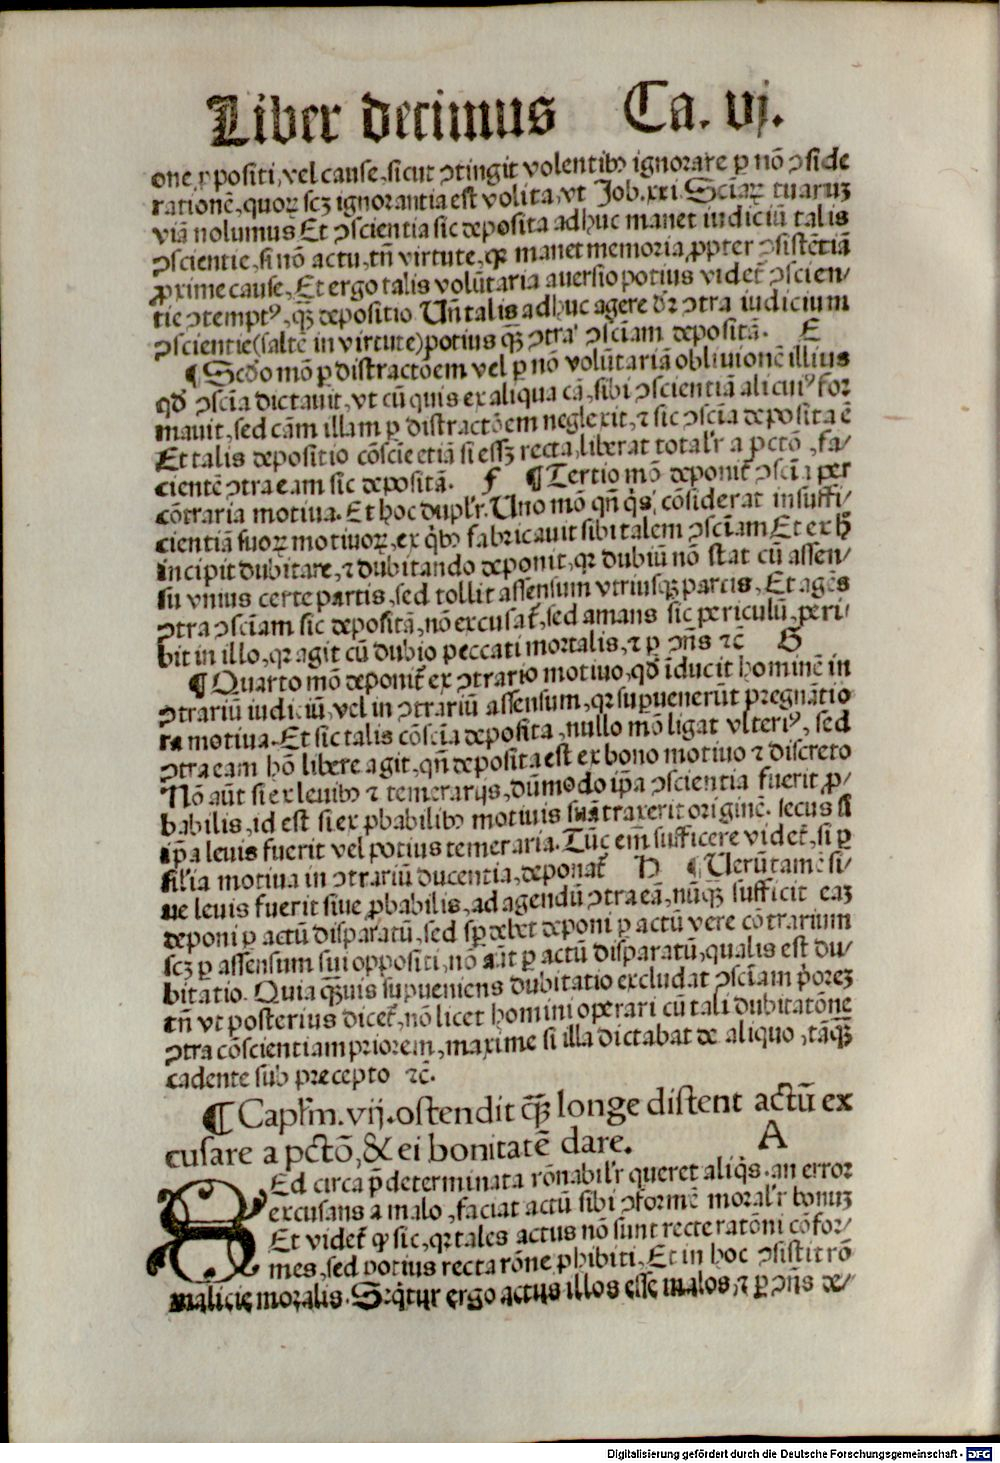 Liber decimus Ca. vj.
one ꝓpositi, vel cause, sicut ꝯtingit volentibꝰ ignorare ꝑ nō ꝯside
rationē, quoꝝ scꝫ ignorantia est volita, vt Job. xxi. Sciāꝝ tuaruꝫ
viā nolumus Et ꝯscientia sic deposita adhuc manet iudiciū talis
ꝯscientie, si nō actu, tn̄ virtute, qꝛ manet memoria, ꝓpter ꝯsistētiā
ꝓxime cause, Et ergo talis volūtaria auersio potius videt̄ ꝯscien/
tie ꝯtemptꝰ, qꝫ̄ depositio Un̄ talis adhuc agere dr̄ ꝯtra iudicium
ꝯscientie (saltē in virtute) potius qꝫ̄ ꝯtra ꝯsciam depositā. E
¶ Secdo mō ꝑ distractōem vel ꝑ nō volūtariā obliuionē illius
qđ ꝯscīa dictauit, vt cū quis ex aliqua cā, sibi ꝯscientiā alicuiꝰ for
mauit, sed cām illam ꝑ distractōem neglexit, ⁊ sic ꝯscīa deposita ē
Et talis depositio cōscīe etiā si essꝫ recta, liberat totalr̄ a pctō, fa/
cientē ꝯtra eam sic depositā. F ¶ Tertio mō deponit̄ ꝯscīa per
cōtraria motiua. Et hoc duplr̄. Uno mō qn̄ qͥs cōsiderat insuffi/
cientiā suoꝝ motiuoꝝ, ex qͥbꝰ fabricauit sibi talem ꝯsciam Et ex ꝧ
incipit dubitare, ⁊ dubitando deponit, qꝛ dubiū nō stat cū assen/
su vnius certe partis, sed tollit assensum vtriusqꝫ partis, Et agēs
ꝯtra ꝯsciam sic depositā, nō excusat̄, sed amans sic periculū, peri/
bit in illo, qꝛ agit cū dubio peccati mortalis, ⁊ ꝑ ꝯn̄s ⁊c̄ G
¶ Quarto mō deponit̄ ex ꝯtrario motiuo, qđ īducit hominē in
ꝯtrariū iudiciū, vel in ꝯtrariū assensum, qꝛ supuenerūt pregnātio
ra motiua. Et sic talis cōscīa deposita, nullo mō ligat vlteriꝰ, sed
ꝯtra eam hō libere agit, qn̄ deposita est ex bono motiuo ⁊ discreto
Nō aūt si ex leuibꝰ ⁊ temerarijs, dūmodo ip̄a ꝯscientia fuerit ꝓ/
babilis, id est si ex ꝓbabilibꝰ motiuis suā traxerit originē. secus si
ip̄a leuis fuerit vel potius temeraria. Tūc em̄ sufficere videt̄, si ꝑ
silia motiua in ꝯtrariū ducentia, deponat̄ H ¶ Uerūtamē si/
ue leuis fuerit siue ꝓbabilis, ad agendū ꝯtra eā, nūqꝫ̄ sufficit eaꝫ
deponi ꝑ actū disparatū, sed sp̄ debet deponi ꝑ actū vere cōtrarium
scꝫ ꝑ assensum sui oppositi, nō aūt ꝑ actū disparatū, qualis est du/
bitatio. Quia qꝫ̄uis supueniens dubitatio excludat ꝯsciam pͥoreꝫ
tn̄ vt posterius dicet̄, nō licet homini operari cū tali dubitatōne
ꝯtra cōscientiam priorem, maxime si illa dictabat de aliquo, tāqꝫ̄
cadente sub precepto ⁊c̄.
¶ Caplm̄. vij. ostendit qꝫ̄ longe distent actū ex
cusare a pctō, & ei bonitatē dare. A
SEd circa p̄determinata rōnabilr̄ queret aliqͥs. an error
excusans a malo, faciat actū sibi ꝯformē moralr̄ bonuꝫ
Et videt̄ ꝙ sic, qꝛ tales actus nō sunt recte ratōni cōfor/
mes, sed potius recta rōne ꝓhibiti, Et in hoc ꝯsistit rō
malicie moralis. Seqͥtur ergo actus illos esse malos, ⁊ ꝑ ꝯn̄s de/
Digitalisierung gefördert durch die Deutsche Forschungsgemeinschaft - DFG